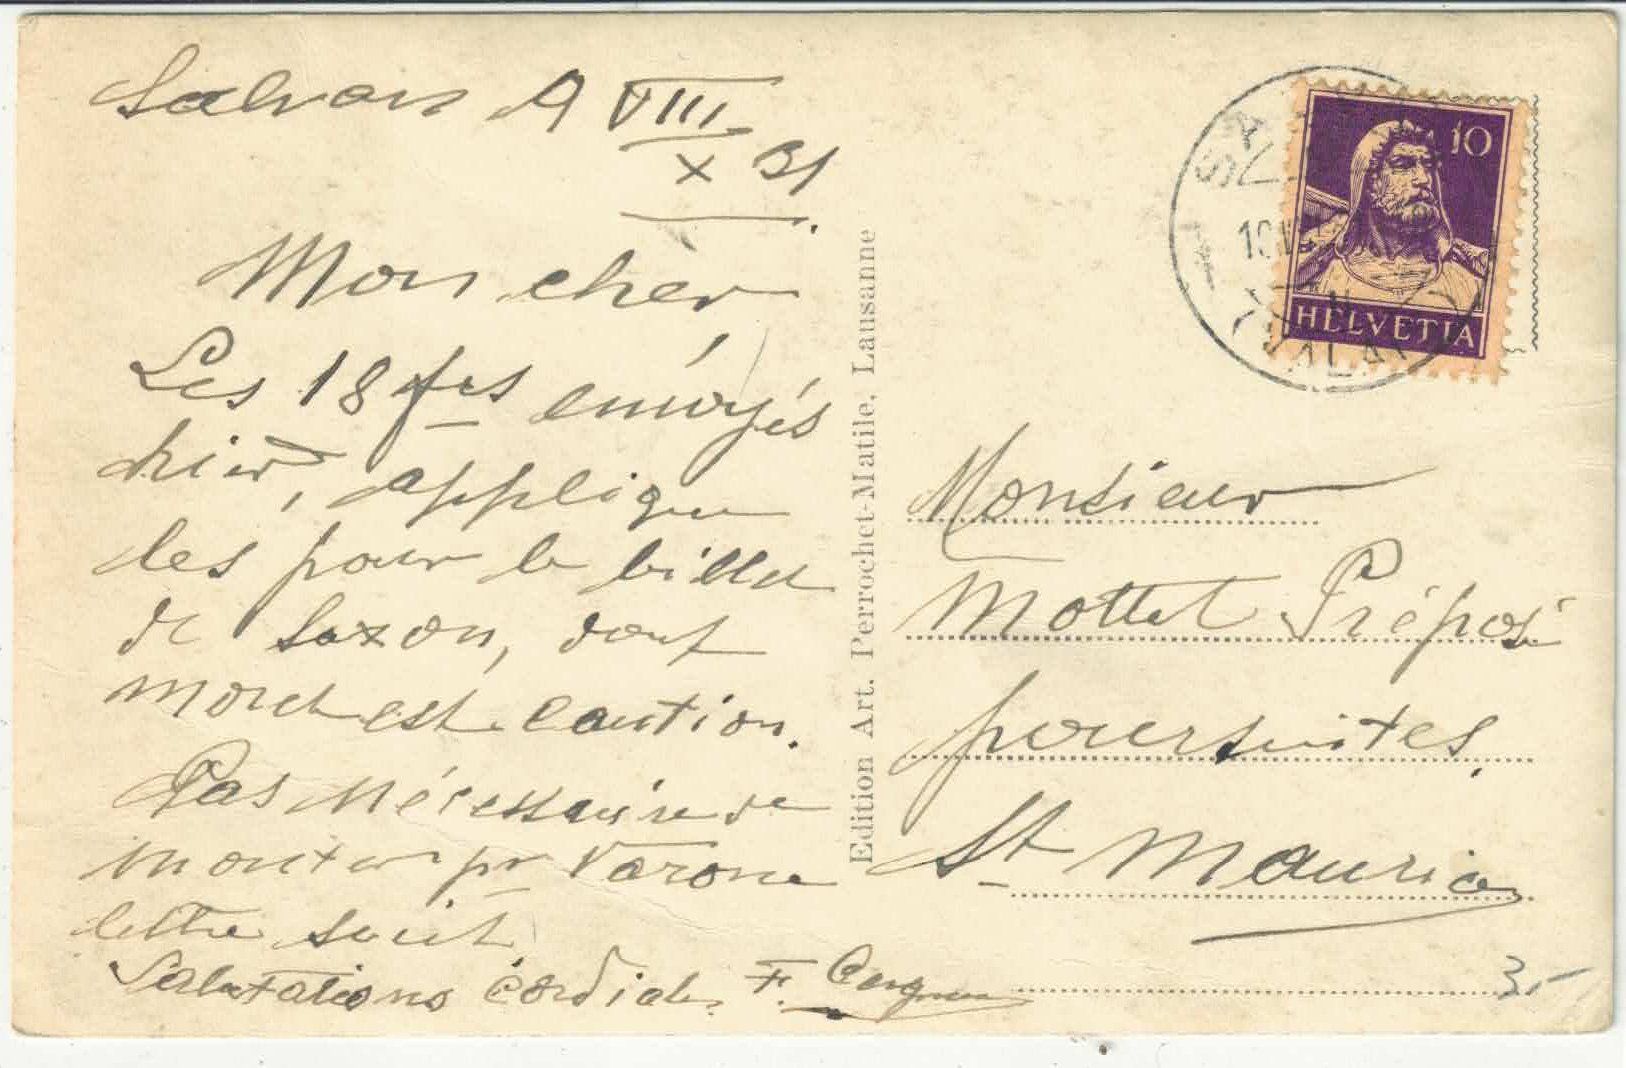 Salvan 9 VIII
X 31.
Mon cher,
Les 18 frs envoyés
hier, applique
les pour le billet
de Saxon, dont
moret est caution.
Pas nécessaire de
monter pr Varone
lettre suit,
Salutations cordiales F.
Edition Art. Perrochet-Matile, Lausanne
10
HELVETIA
Monsieur
Mottet Préposé
poursuites,
St Maurice
3.-